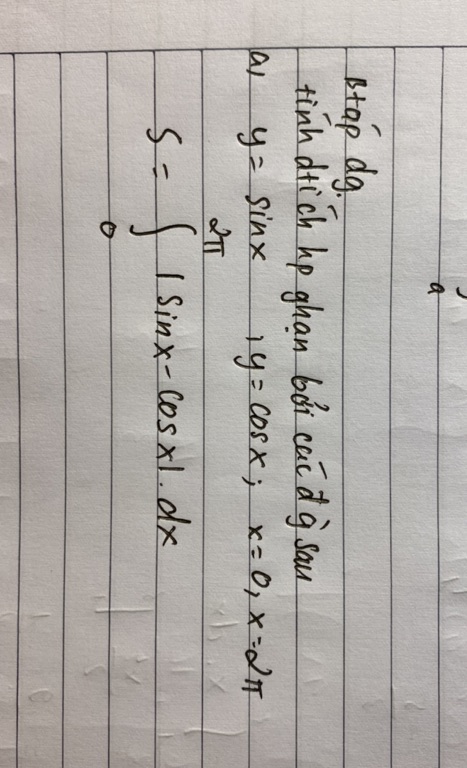 a
Btáp dg.
tính dtích hp ghạn bởi các đg sau
a, y = sinx , y = cosx; x = 0, x = 2π
2π
S = ∫ |sinx - cosx|. dx
0